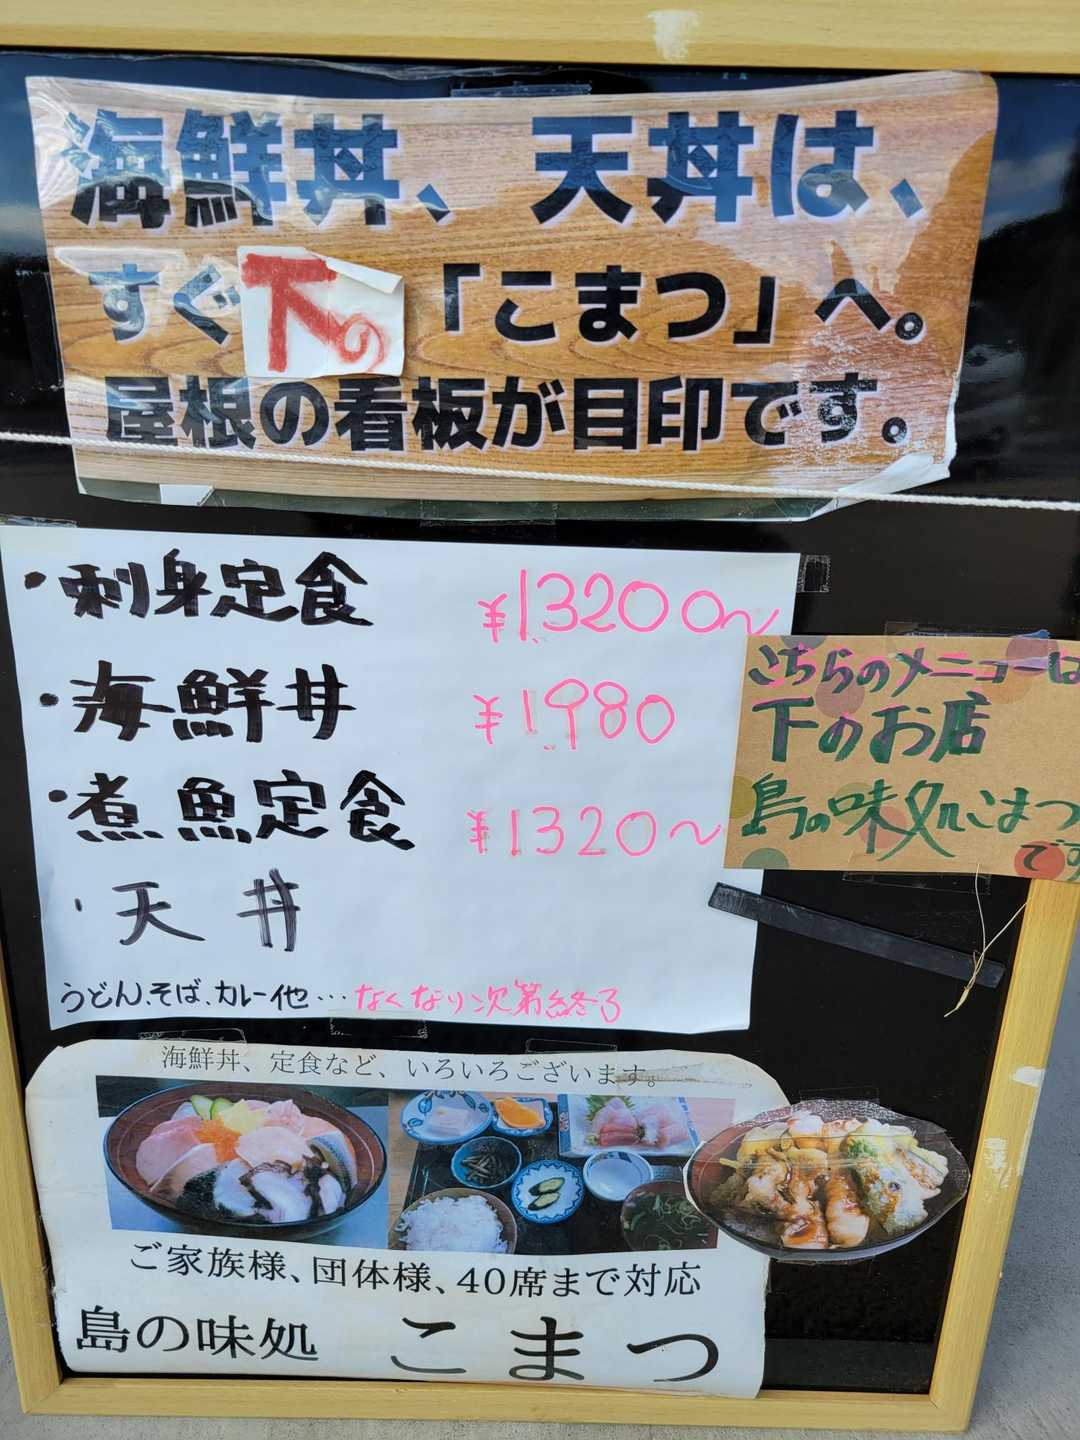 海鮮丼、天丼は、
すぐ下の「こまつ」へ。
屋根の看板が目印です。
・刺身定食 ¥1320〜
・海鮮丼 ¥1980
・煮魚定食 ¥1320〜
・天丼
うどん、そば、カレー他…なくなり次第終了
こちらのメニューは
下のお店
島の味処こまつ
です
海鮮丼、定食など、いろいろございます。
ご家族様、団体様、40席まで対応
島の味処 こまつ